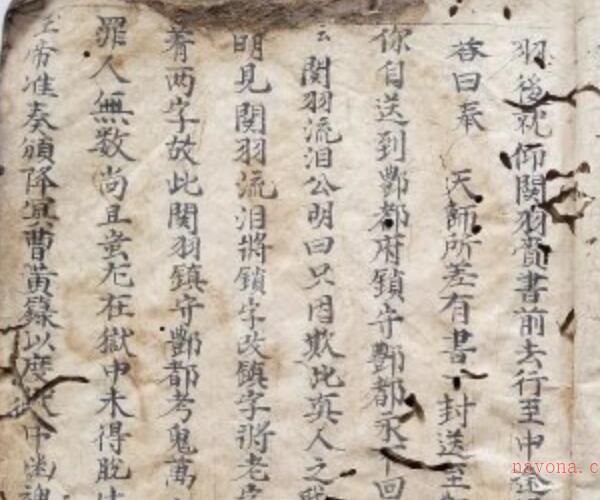 羽後就仰関羽賫書前去行至中途
答曰奉 天師所差有書一封送至
你自送到酆都府鎖守酆都永不回
云関羽流泪公明曰只因欺此真人之
明見関羽流泪將鎖字改鎮字將老字
著两字故此関羽鎮守酆都考鬼萬
罪人無数尚且蚩尤在獄中未得脱
玉帝准奏頒降冥曹黄籙以度獄中幽魂
nayona.c